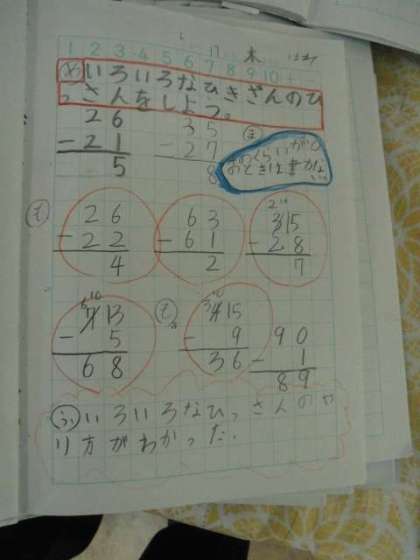 1 2 3 4 5 6 7 8 9 10
木
め いろいろなひきざんのひ
きざんをしよう。
26
-21
5
35
-27
8
ま
のくらいが0
のときは書かない
も
26
-22
4
63
-61
2
2 10
315
-28
7
6 10
713
-5
68
も
3 10
415
-9
36
90
-1
89
ふ いろいろなひっさんのや
り方がわかった.